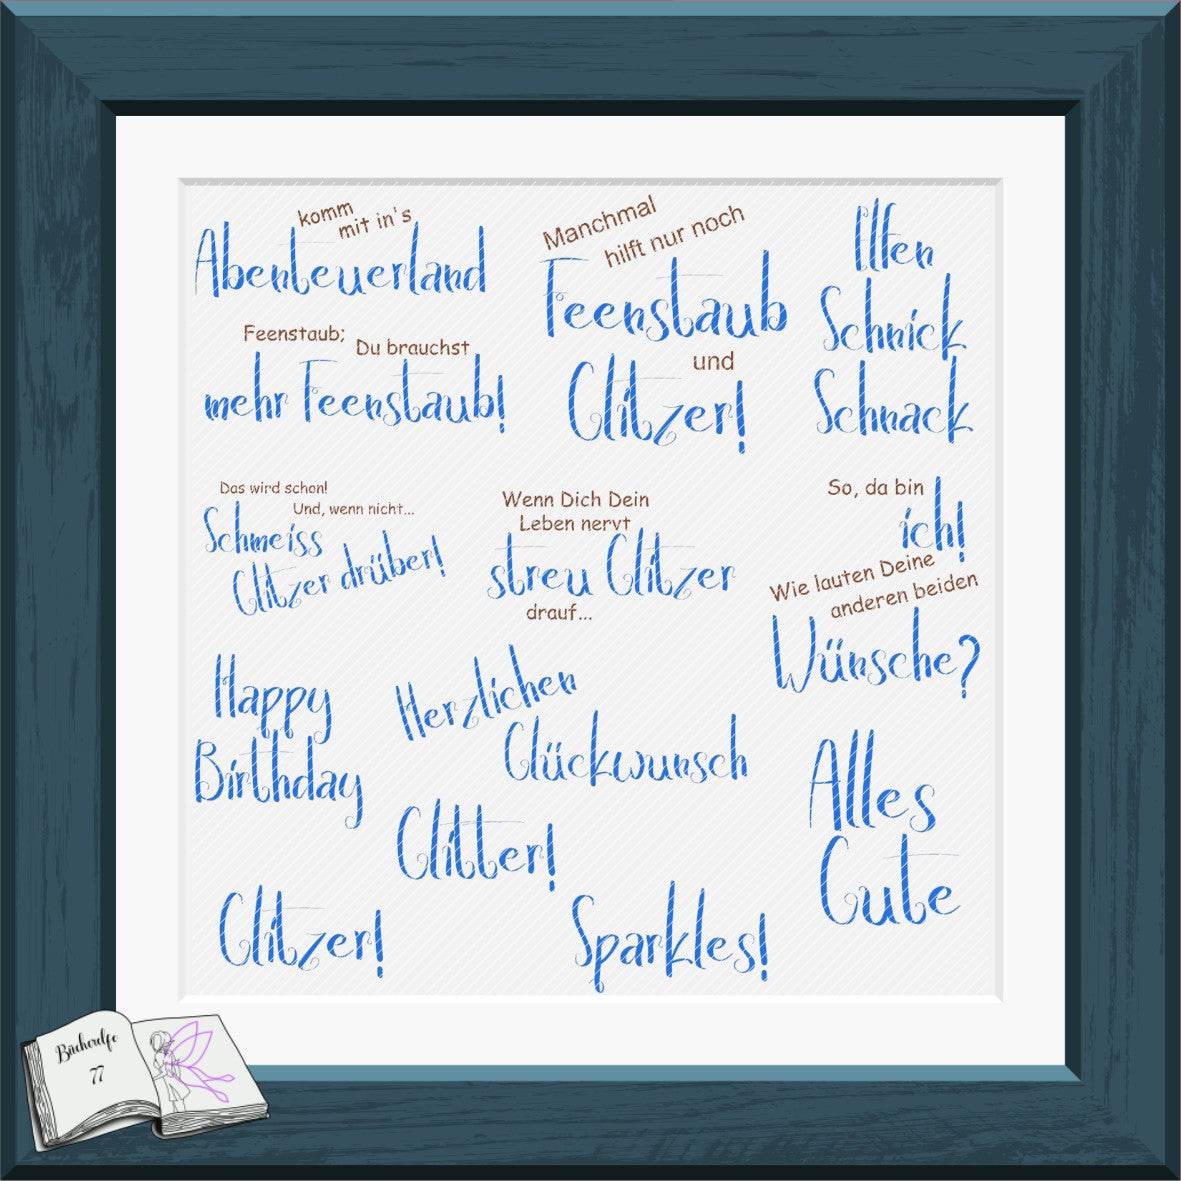 komm
mit in's
Abenteuerland
Manchmal
hilft nur noch
Feenstaub
und
Glitzer!
Elfen
Schnick
Schnack
Feenstaub;
Du brauchst
mehr Feenstaub!
Das wird schon!
Und, wenn nicht...
Schmeiss
Glitzer drüber!
Wenn Dich Dein
Leben nervt
streu Glitzer
drauf...
So, da bin
ich!
Wie lauten Deine
anderen beiden
Wünsche?
Happy
Birthday
Herzlichen
Glückwunsch
Alles
Gute
Glitter!
Glitzer!
Sparkles!
Bücherelfe
77